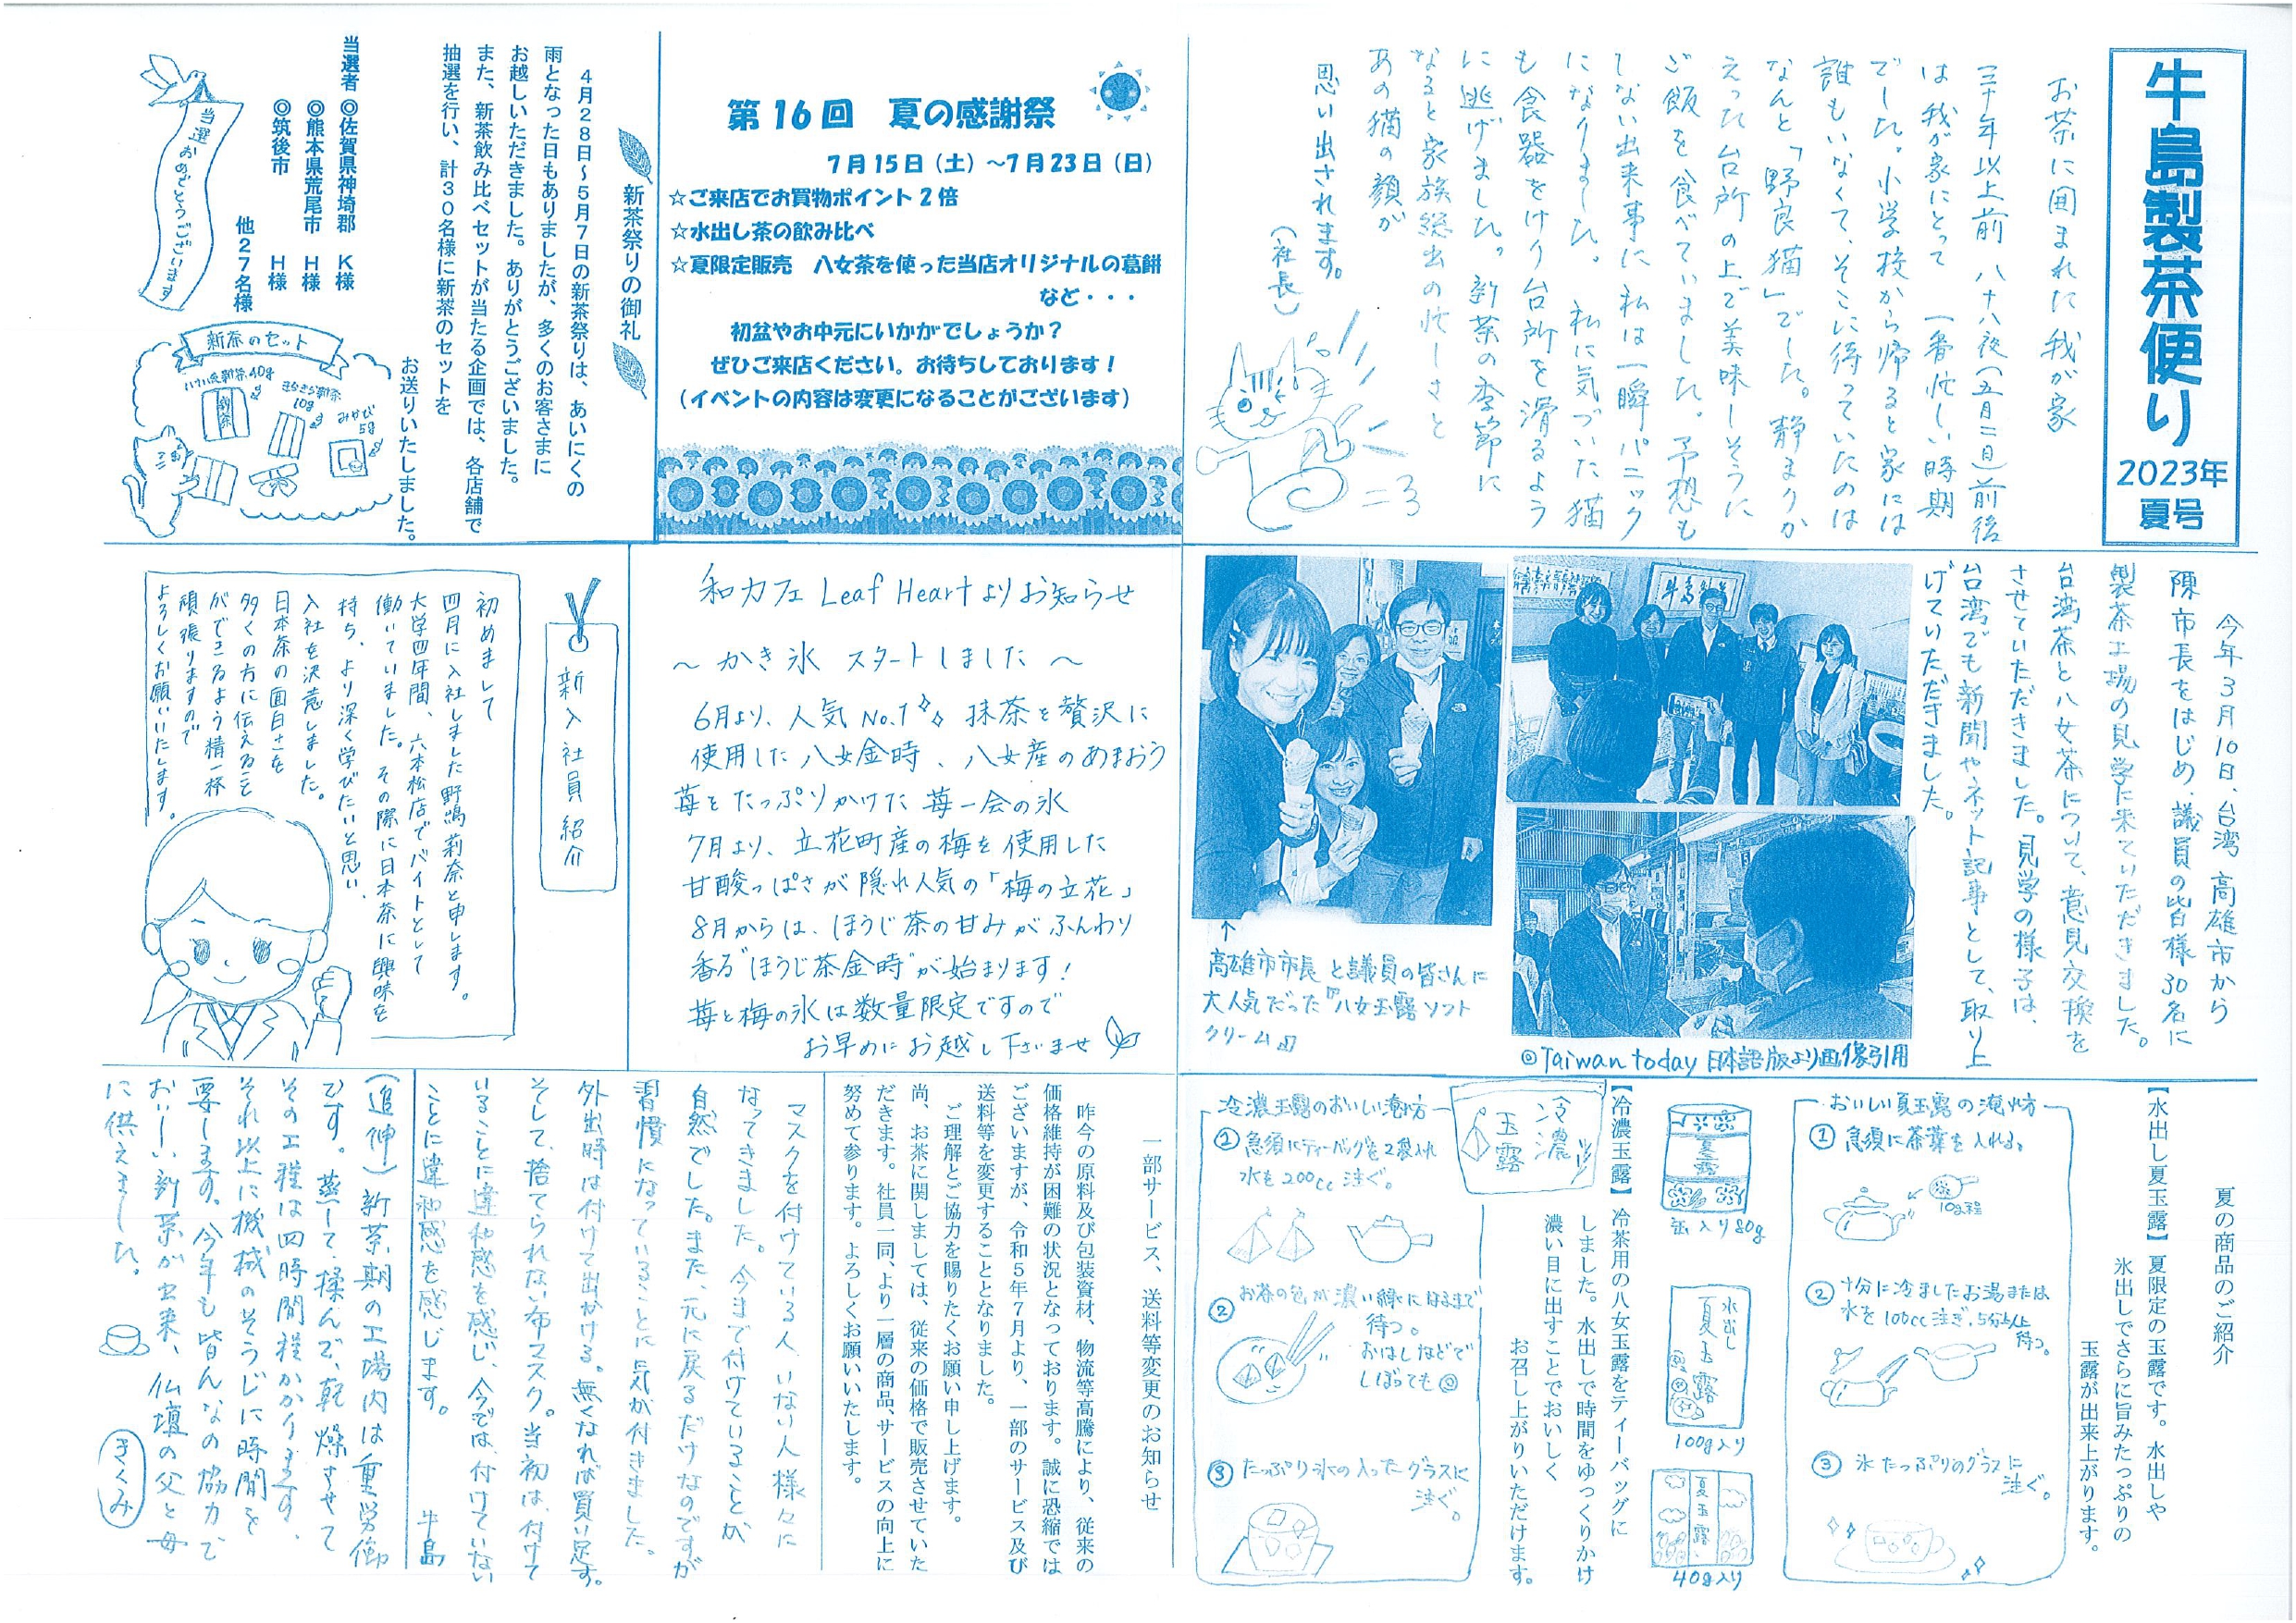 牛島製茶便り
2023年
夏号
お茶に囲まれた我が家
三十年以上前 八十八夜(五月二日)前後
は我が家にとって 一番忙しい時期
でした。小学校から帰ると家には
誰もいなくて、そこに待っていたのは
なんと「野良猫」でした。静まりか
えった台所の上で美味しそうに
ご飯を食べていました。予想も
しない出来事に私は一瞬パニック
になりました。私に気づいた猫
も食器をけり台所を滑るよう
に逃げました。新茶の季節に
なると家族総出の忙しさと
あの猫の顔が
思い出されます。
(社長)
第16回 夏の感謝祭
7月15日(土)～7月23日(日)
☆ご来店でお買物ポイント2倍
☆水出し茶の飲み比べ
☆夏限定販売 八女茶を使った当店オリジナルの葛餅
など・・・
初盆やお中元にいかがでしょうか?
ぜひご来店ください。お待ちしております!
(イベントの内容は変更になることがございます)
新茶祭りの御礼
4月28日～5月7日の新茶祭りは、あいにくの
雨となった日もありましたが、多くのお客さまに
お越しいただきました。ありがとうございました。
また、新茶飲み比べセットが当たる企画では、各店舗で
抽選を行い、計30名様に新茶のセットを
お送りいたしました。
当選者 ◎佐賀県神埼郡 K様
◎熊本県荒尾市 H様
◎筑後市 H様
他27名様
当選おめでとうございます
新茶のセット
新茶40g
新茶
10g
みやび
5g
新茶
今年3月10日、台湾 高雄市から
陳市長をはじめ、議員の皆様30名に
製茶工場の見学に来ていただきました。
台湾茶と八女茶について、意見交換を
させていただきました。見学の様子は、
台湾でも新聞やネット記事として、取り上
げていただきました。
↑
高雄市市長と議員の皆さんに
大人気だった『八女玉露ソフト
クリーム』
©Taiwan today 日本語版より画像引用
和カフェ Leaf Heartよりお知らせ
～ かき氷 スタートしました ～
6月より、人気No.1 抹茶を贅沢に
使用した八女金時、八女産のあまおう
苺をたっぷりかけた苺一会の氷
7月より、立花町産の梅を使用した
甘酸っぱさが隠れ人気の「梅の立花」
8月からは、ほうじ茶の甘みがふんわり
香る"ほうじ茶金時"が始まります!
苺と梅の氷は数量限定ですので
お早めにお越し下さいませ
新入社員紹介
初めまして
四月に入社しました野嶋莉奈と申します。
大学四年間、六本松店でバイトとして
働いていました。その際に日本茶に興味を
持ち、より深く学びたいと思い、
入社を決意しました。
日本茶の面白さを
多くの方に伝えること
ができるよう精一杯
頑張りますので
よろしくお願いいたします。
夏の商品のご紹介
【水出し夏玉露】夏限定の玉露です。水出しや
氷出しでさらに旨みたっぷりの
玉露が出来上がります。
おいしい夏玉露の淹れ方
① 急須に茶葉を入れる。
10g程
② 十分に冷ましたお湯または
水を100cc注ぎ、5分以上
待つ。
③ 氷たっぷりのグラスに
注ぐ。
夏玉露
缶入り80g
水出し
夏玉露
100g入り
夏玉露
40g入り
【冷濃玉露】冷茶用の八女玉露をティーバッグに
しました。水出しで時間をゆっくりかけ
濃い目に出すことでおいしく
お召し上がりいただけます。
冷濃
玉露
冷濃玉露のおいしい淹れ方
② 急須にティーバッグを2袋入れ
水を200cc注ぐ。
② お茶の色が濃い緑になるまで
待つ。
おはしなどで
しぼっても◎
③ たっぷり氷の入ったグラスに
注ぐ。
一部サービス、送料等変更のお知らせ
昨今の原料及び包装資材、物流等高騰により、従来の
価格維持が困難の状況となっております。誠に恐縮では
ございますが、令和5年7月より、一部のサービス及び
送料等を変更することとなりました。
ご理解とご協力を賜りたくお願い申し上げます。
尚、お茶に関しましては、従来の価格で販売させていた
だきます。社員一同、より一層の商品、サービスの向上に
努めて参ります。よろしくお願いいたします。
マスクを付けている人、いない人様々に
なってきました。今まで付けていることが
自然でした。また、元に戻るだけなのですが
習慣になっていることに気が付きました。
外出時は付けて出かける。無くなれば買い足す。
そして、捨てられない布マスク。当初は、付けて
いることに違和感を感じ、今では、付けていない
ことに違和感を感じます。 牛島
(追伸)新茶期の工場内は重労働
です。蒸して、揉んで、乾燥させて
その工程は四時間程かかります。
それ以上に機械のそうじに時間を
要します。今年も皆んなの協力で
おいしい新茶が出来、仏壇の父と母
に供えました。
きくみ